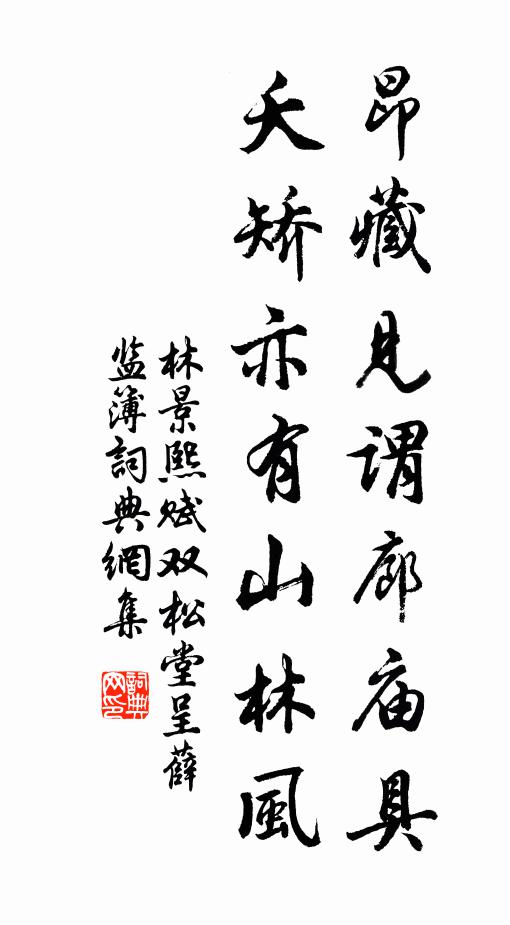 昂藏見谓廊庙具
夭矫亦有山林風
林景熙赋双松堂呈薛
监簿詞典網集
詞典
网印